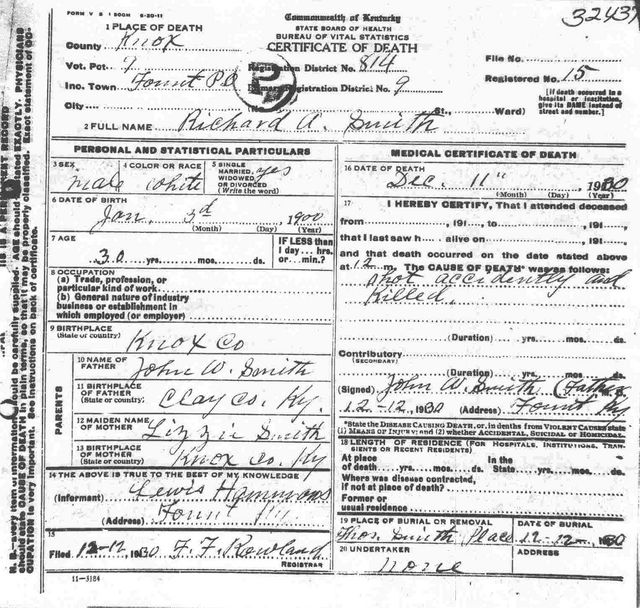 FORM V. S. 1 500M 6-20-11
Commonwealth of Kentucky
32437
STATE BOARD OF HEALTH
BUREAU OF VITAL STATISTICS
CERTIFICATE OF DEATH
1 PLACE OF DEATH
County Knox
Vot. Pct. 9
Registration District No. 814
File No.
Inc. Town Fount P.O
Primary Registration District No. 9
Registered No. 15
City (No. St., Ward)
[If death occurred in a hospital or institution, give its NAME instead of street and number.]
2 FULL NAME Richard A. Smith
PERSONAL AND STATISTICAL PARTICULARS
3 SEX male
4 COLOR OR RACE white
5 SINGLE MARRIED, WIDOWED OR DIVORCED (Write the word) yes
6 DATE OF BIRTH
Jan. 3d 1900
(Month) (Day) (Year)
7 AGE
30 yrs. mos. ds.
IF LESS than 1 day... hrs. or... min.?
8 OCCUPATION
(a) Trade, profession, or particular kind of work
(b) General nature of industry business or establishment in which employed (or employer)
9 BIRTHPLACE (State or country) Knox Co
PARENTS
10 NAME OF FATHER John W. Smith
11 BIRTHPLACE OF FATHER (State or country) Clay Co. Ky.
12 MAIDEN NAME OF MOTHER Lizzie Smith
13 BIRTHPLACE OF MOTHER (State or country) Knox Co. Ky
14 THE ABOVE IS TRUE TO THE BEST OF MY KNOWLEDGE
(Informant) Lewis Hammons
(Address) Fount
15
Filed 12-12, 1930 F. F. Rowland
REGISTRAR
11-3184
MEDICAL CERTIFICATE OF DEATH
16 DATE OF DEATH
Dec. 11" 1930
(Month) (Day) (Year)
17 I HEREBY CERTIFY, That I attended deceased
from , 191 , to , 191 ,
that I last saw h alive on , 191 ,
and that death occurred on the date stated above
at 12 m. The CAUSE OF DEATH* was as follows:
shot accidently and
Killed.
(Duration) yrs. mos. ds.
Contributory (SECONDARY)
(Duration) yrs. mos. ds.
(Signed) John W. Smith (Father
12-12, 1930 (Address) Fount Ky
*State the DISEASE CAUSING DEATH, or, in deaths from VIOLENT CAUSES state (1) MEANS OF INJURY; and (2) whether ACCIDENTAL, SUICIDAL OR HOMICIDAL.
18 LENGTH OF RESIDENCE (FOR HOSPITALS, INSTITUTIONS, TRANSIENTS OR RECENT RESIDENTS)
At place of death yrs. mos. ds. In the State yrs. mos. ds.
Where was disease contracted, if not at place of death?
Former or usual residence
19 PLACE OF BURIAL OR REMOVAL Thos. Smith Place
DATE OF BURIAL 12-12- 1930
20 UNDERTAKER none
ADDRESS